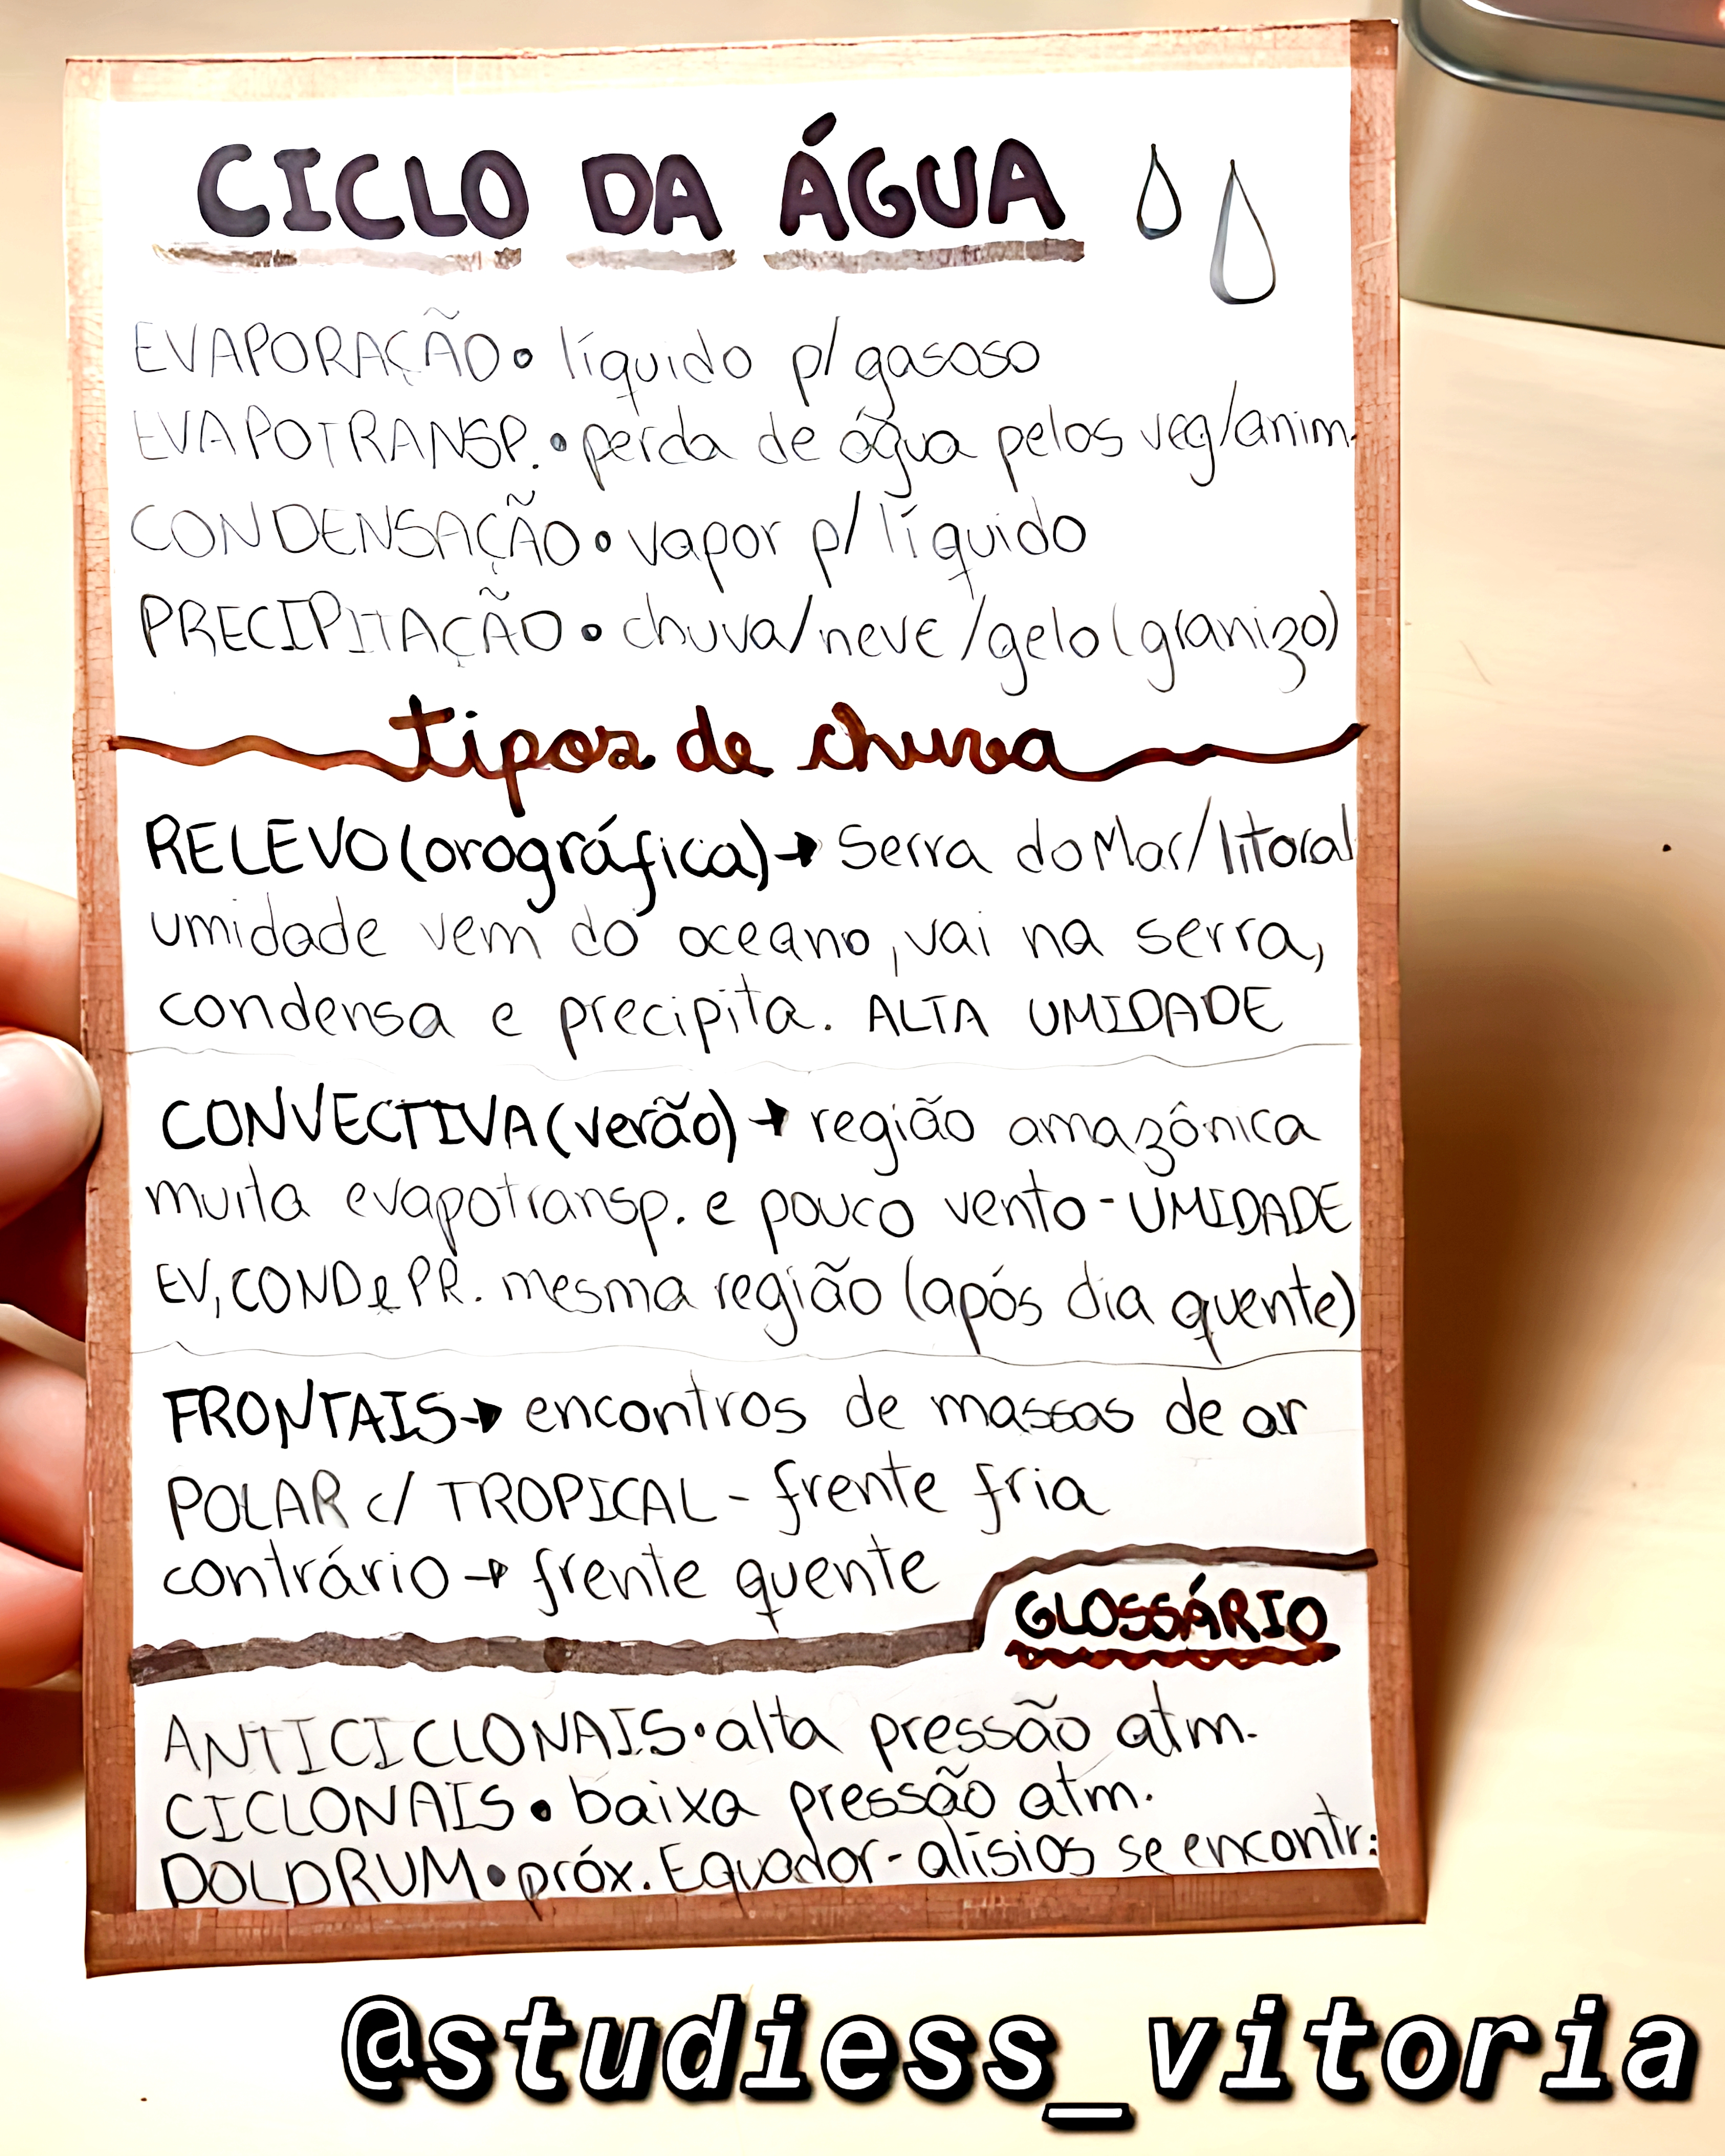 CICLO DA ÁGUA
EVAPORAÇÃO • líquido p/ gasoso
EVAPOTRANSP. • perda de água pelos veg/anim.
CONDENSAÇÃO • vapor p/ líquido
PRECIPITAÇÃO • chuva/neve/gelo (granizo)
tipos de chuva
RELEVO (orográfica) → Serra do Mar/litoral
umidade vem do oceano, vai na serra,
condensa e precipita. ALTA UMIDADE
CONVECTIVA (verão) → região amazônica
muita evapotransp. e pouco vento - UMIDADE
EV, COND e PR. mesma região (após dia quente)
FRONTAIS → encontros de massas de ar
POLAR c/ TROPICAL - frente fria
contrário → frente quente
GLOSSÁRIO
ANTICICLONAIS • alta pressão atm.
CICLONAIS • baixa pressão atm.
DOLDRUM • próx. Equador - alísios se encontr.
@studiess_vitoria